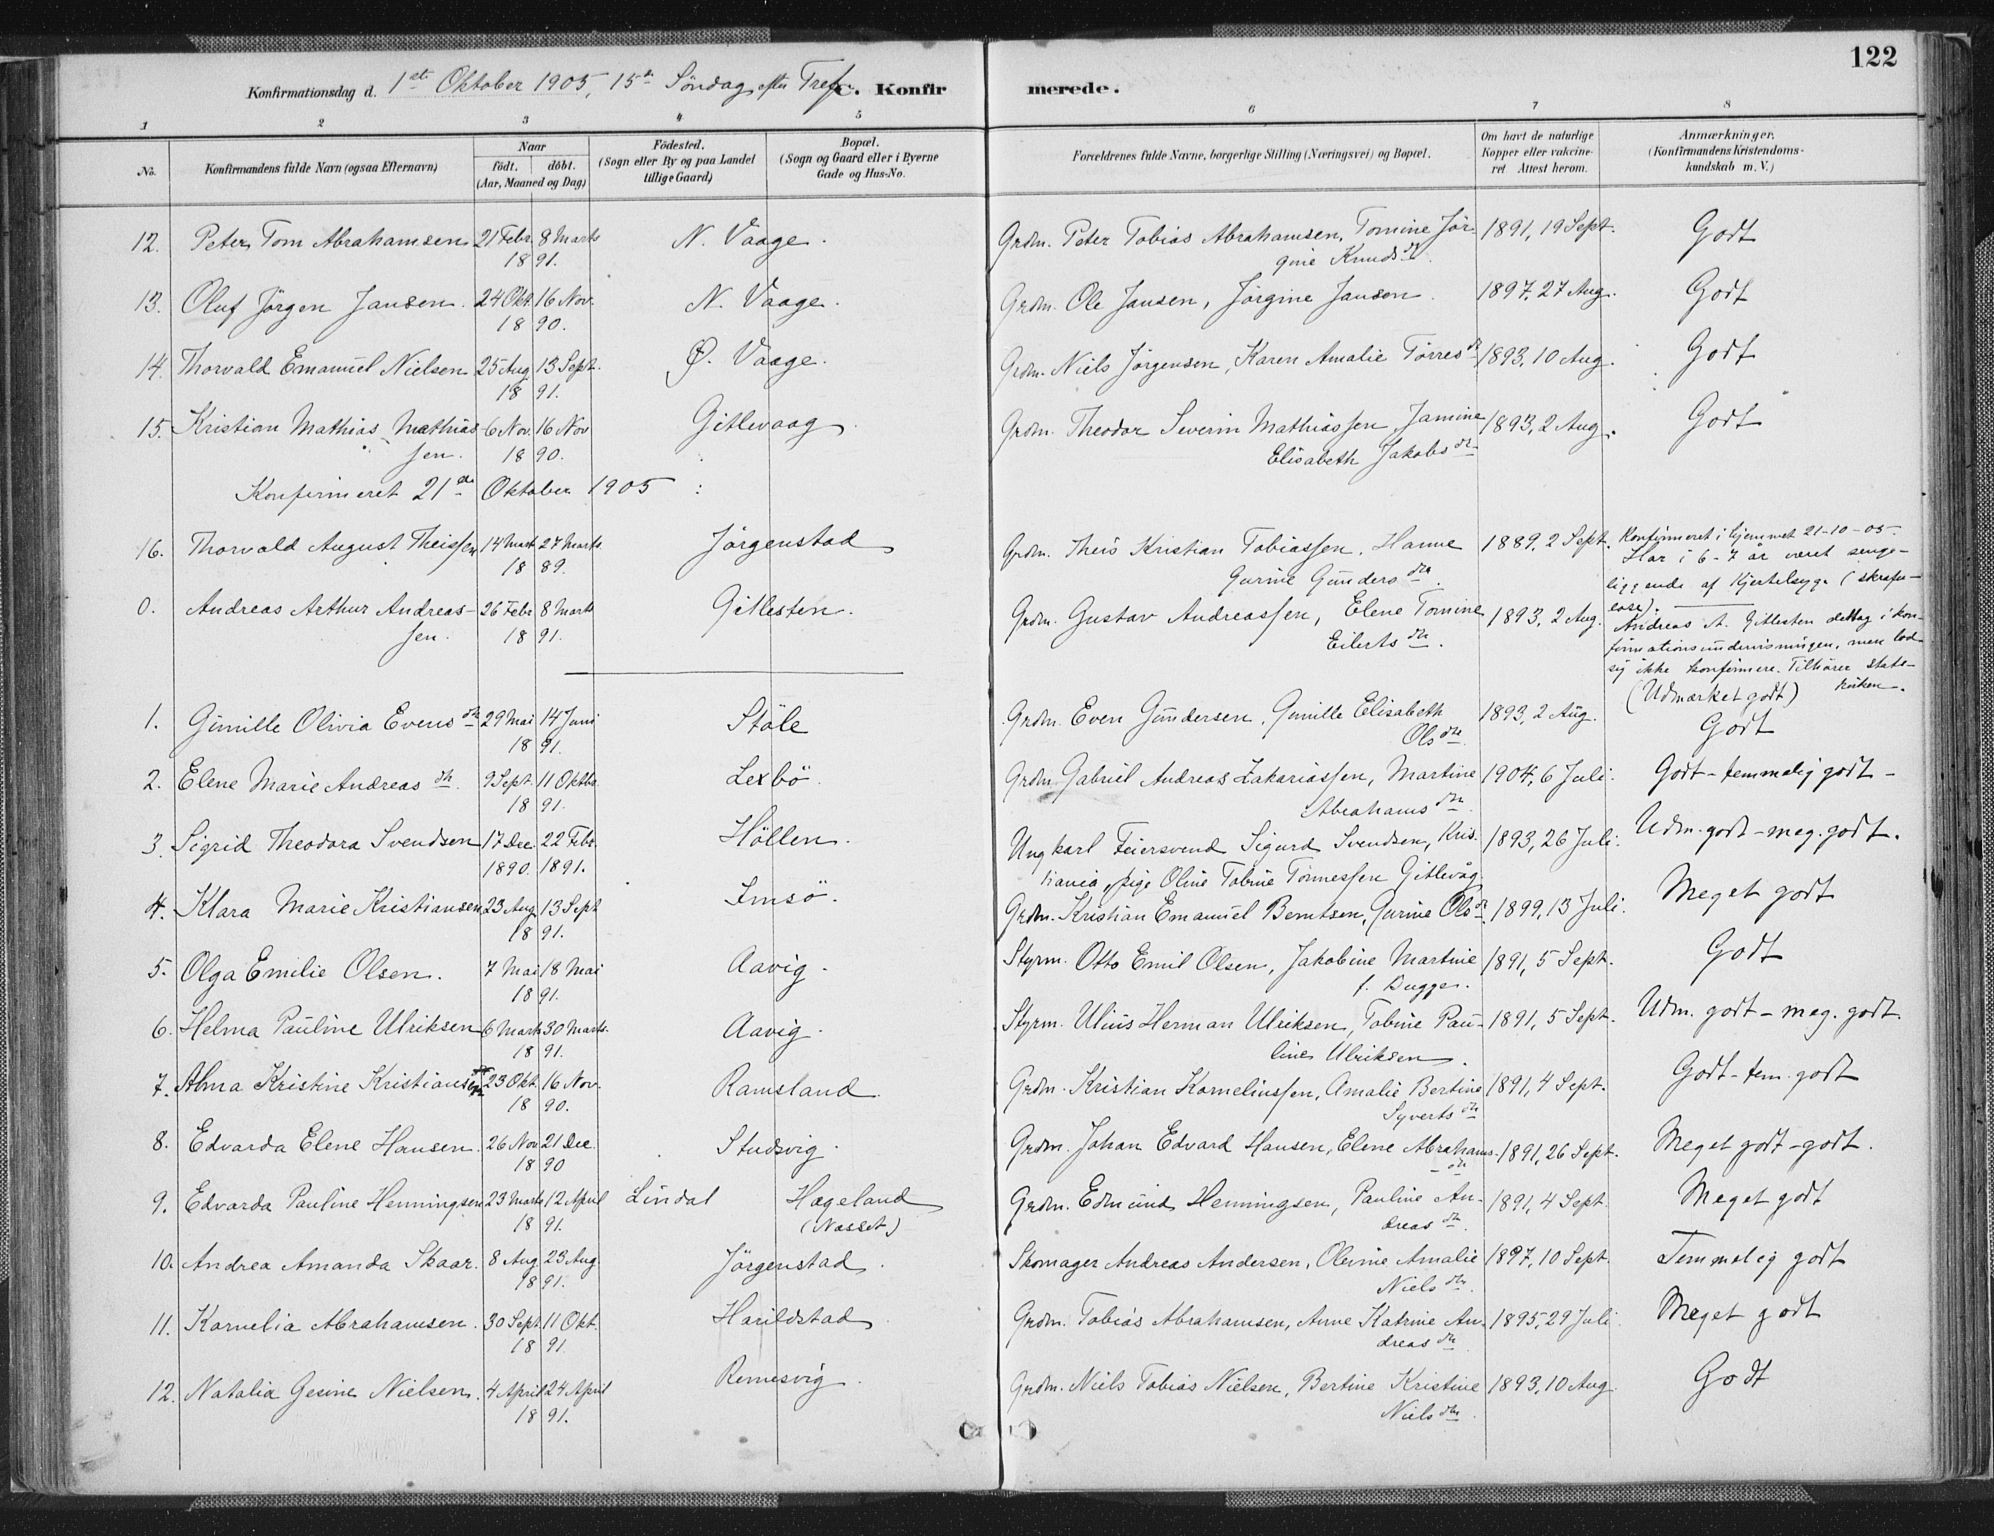 122
Konfirmationsdag d. 1ste Oktober 1905, 15de Söndag efter Tref. C. Konfirmerede.
1 2 3 4 5 6 7 8
No. Konfirmandens fulde Navn (ogsaa Efternavn) Naar födt. döbt. (Aar, Maaned og Dag) Födested. (Sogn eller By og paa Landet tillige Gaard) Bopæl. (Sogn og Gaard eller i Byerne Gade og Hus-No. Forældrenes fulde Navne, borgerlige Stilling (Næringsvei) og Bopæl. Om havt de naturlige Kopper eller vakcineret Attest herom. Anmærkninger. (Konfirmandens Kristendomskundskab m. V.)
12. Peter Tom Abrahamsen 21 Febr. 8 Marts N. Vaage. Grdm. Peter Tobias Abrahamsen, Tomine Jör- 1891, 19 Sept. Godt
18 91. gine Knudsdtr.
13. Oluf Jörgen Jansen. 24 Okt. 16 Nov. N. Vaage. Grdm. Ole Jansen, Jörgine Jansen. 1897, 27 Aug. Godt
18 90.
14. Thorvald Emanuel Nielsen 25 Aug 13 Sept. Ø. Vaage. Grdm. Niels Jörgensen, Karen Amalie Törresdtr 1893, 10 Aug. Godt
18 91.
15. Kristian Mathias Mathias- 6 Nov. 16 Nov Gitlevaag. Grdm. Theodor Severin Mathiassen, Jamine 1893, 2 Aug. Godt
sen. 18 90. Elisabeth Jakobsdtr
Konfirmeret 21de Oktober 1905
16. Thorvald August Theissen 14 Mart 27 Marts Jörgenstad Grdm. Theis Kristian Tobiassen, Hanne 1889, 2 Sept. Konfirmeret i hjemmet 21-10-05.
18 89. Gurine Gundersdtr. Har i 6-7 år været senge-
liggende af Kjertelsyge (skrofu-
0. Andreas Arthur Andreas- 26 Febr 8 Marts Gitlesten. Grdm. Gustav Andreassen, Elene Tomine 1893, 2 Aug. lose).
sen. 18 91. Eilertsdtr. Andreas A. Gitlesten deltog i kon-
firmationsundervisningen, men lod
sig ikke konfirmere. Tilhører stats-
kirken.
1. Gunille Olivia Evensdtr 29 Mai 14 Juni Ståle Grdm. Even Gundersen, Gunille Elisabeth 1893, 2 Aug. (Udmærket godt)
18 91. Olsdtr. Godt
2. Elene Marie Andreasdtr. 9 Sept. 11 Oktbr. Lexbö. Grdm. Gabriel Andreas Zakariassen, Martine 1904, 6 Juli. Godt - temmelig godt -
18 91. Abrahamsdtr.
3. Sigrid Theodora Svendsen 17 Dec. 22 Febr Höllen. Ungkarl Feiersvend Sigurd Svendsen, Kris- 1893, 26 Juli. Udm. godt - meg. godt.
1890. 1891. tiania, pige Oline Tobine Tönnessen Gitlevåg
4. Klara Marie Kristiansen 23 Aug 13 Sept Imsö. Grdm. Kristian Emanuel Berntsen, Gurine Olsdtr. 1899, 13 Juli. Meget godt
18 91.
5. Olga Emilie Olsen. 7 Mai 18 Mai Aavig. Styrm. Otto Emil Olsen, Jakobine Martine 1891, 5 Sept. Godt
18 91. f. Dugger.
6. Helma Pauline Ulriksen 6 Marts 30 Marts. Aavig. Styrm. Ulius Herman Ulriksen, Tobine Pau- 1891, 5 Sept. Udm. godt - meg. godt.
18 91. line Ulriksen.
7. Alma Kristine Kristiansen 23 Okt. 16 Nov. Ramsland. Grdm. Kristian Korneliussen, Amalie Bertine 1891, 4 Sept. Godt - tem. godt
18 90. Syvertsdtr
8. Edvarda Elene Hansen. 26 Nov 21 Dec. Studsvig. Grdm. Johan Edvard Hansen, Elene Abrahams- 1891, 26 Sept. Meget godt - godt.
18 90 dtr
9. Edvarda Pauline Henningsen 23 Marts 12 April Lindal Hægeland Grdm. Edmund Henningsen, Pauline An- 1891, 4 Sept. Meget godt
18 91. (Nasset) dreasdtr.
10. Andrea Amanda Skaar. 8 Aug 23 Aug. Jörgenstad. Skomager Andreas Andersen, Olevine Amalie 1897, 10 Sept. Temmelig godt
18 91. Nielsdtr.
11. Kornelia Abrahamsen. 30 Sept 11 Okt. Harildstad Grdm. Tobias Abrahamsen, Anne Katrine An- 1895, 29 Juli. Meget godt
18 91. dreasdtr
12. Natalia Gesine Nielsen. 4 April 24 April Remesvig. Grdm. Niels Tobias Nielsen, Bertine Kristine 1893, 10 Aug. Godt
18 91. Nielsdtr.